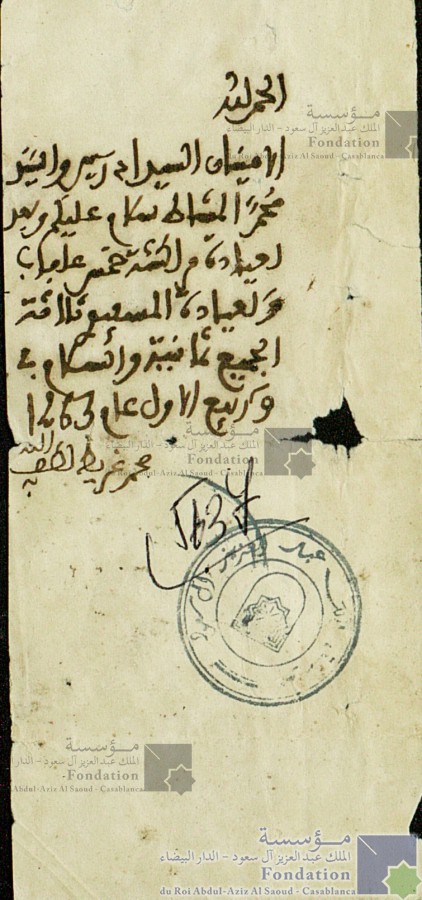 الحمد لله
الامينان السيد ادريس والسيد
محمد المشاط سلام عليكم وبعد
لعيادة خمس علمات
ولعيادة ثلاثة
الجميع ثمانية والسلام في
و ربيع الاول عام 1263
محمد غريط لطف الله به
عبد العزيز آل سعود
مؤسسة
الملك عبد العزيز آل سعود - الدار البيضاء
Fondation
du Roi Abdul-Aziz Al Saoud - Casablanca
مؤسسة
الملك عبد العزيز آل سعود - الدار البيضاء
Fondation
مؤسسة
الملك عبد العزيز آل سعود - الدار
Fondation
Abdul-Aziz Al Saoud - Casablanca
مؤسسة
الملك عبد العزيز آل سعود - الدار البيضاء
Fondation
du Roi Abdul-Aziz Al Saoud - Casablanca